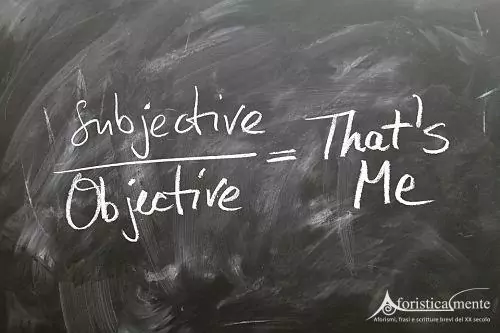 Subjective
Objective
=
That's
Me
Aforisticamente
Aforismi, frasi e scritture brevi del XX secolo